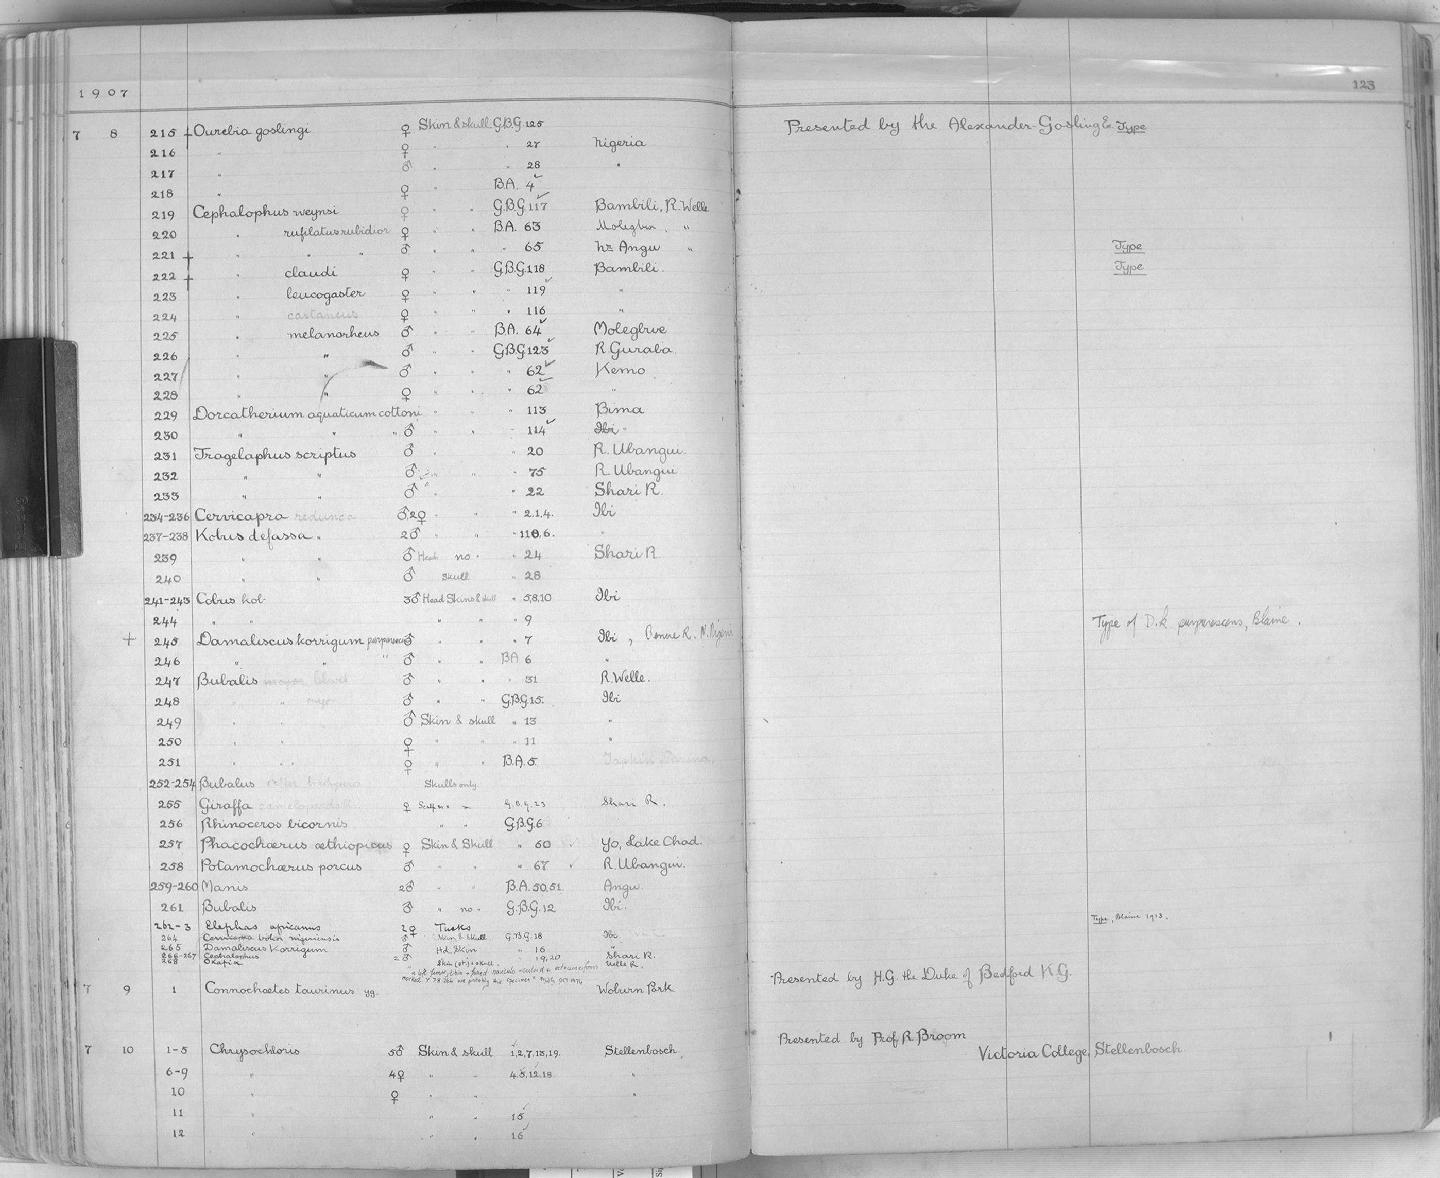 1907
123
7 8 215 + Ourebia goslingi ♀ Skin & skull G.B.G. 125 Presented by the Alexander-Gosling E. Type
216 " ♀ " " 27 Nigeria
217 " ♂ " " 28 "
218 " ♀ " B.A. 4
219 Cephalophus weynsi ♀ " " G.B.G. 117 Bambili, R. Welle
220 " rufilatus rubidior ♀ " " B.A. 63 "
221 + " " " ♂ " " " 65 nr Angu " Type
222 + " claudi ♀ " " G.B.G. 118 Bambili. Type
223 " leucogaster ♀ " " " 119 "
224 " castaneus ♀ " " " 116 "
225 " melanorheus ♂ " " B.A. 64 Molegbwe
226 " " ♂ " " G.B.G. 123 R Guraba
227 " " ♂ " " " 62 Kemo
228 " " ♀ " " " 62 "
229 Dorcatherium aquaticum cottoni " " " 113 Bima
230 " " " ♂ " " " 114 Ibi "
231 Tragelaphus scriptus ♂ " " 20 R. Ubangui.
232 " " ♂ " " " 75 R. Ubangui
233 " " ♂ " " 22 Shari R.
234-236 Cervicapra redunca ♂,2♀ " " " 2,1,4. Ibi
237-238 Kobus defassa " 2♂ " " " 110,6. "
239 " " ♂ Head no " " 24 Shari R
240 " " ♂ Skull " 28
241-243 Cobus kob 3♂ Head Skins & skull " 5,8,10 Ibi
244 " " " " " 9
+ 245 Damaliscus korrigum purpurescens ♂ " " " 7 Ibi, Benue R. N. Nigeria Type of D.k. purpurescens, Blaine.
246 " " " ♂ " " B.A 6 "
247 Bubalis major ♂ " " " 31 R. Welle.
248 " " ♂ " " G.B.G. 15. Ibi
249 " " ♂ Skin & skull " 13 "
250 " " ♀ " " " 11 "
251 " " ♀ B.A. 5
252-254 Bubalus Skulls only
255 Giraffa camelopardalis ♀ G.B.G. 23 Shari R.
256 Rhinoceros bicornis " " G.B.G. 6
257 Phacochærus æthiopicus ♀ Skin & Skull " 60 Yo, Lake Chad.
258 Potamochærus porcus ♂ " " " 67 R. Ubangui.
259-260 Manis 2♂ " " B.A. 50,51. Angu.
261 Bubalis ♂ " no " G.B.G. 12 Ibi.
262-3 Elephas africanus 2♀ Tusks
264 Cervicapra bohor nigeriensis ♂ Skin & Skull G.B.G. 18 Ibi Type, Blaine 1913.
265 Damaliscus Korrigum ♂ Hd. Skin " 16 "
266-267 Cephalophus 2♂ " 19,20 Shari R.
268 Okapia Skin & skull. Welle R.
7 9 1 Connochætes taurinus yg. Woburn Park Presented by H.G. the Duke of Bedford K.G.
7 10 1-5 Chrysochloris 5♂ Skin & skull 1,2,7,13,19. Stellenbosch, Presented by Prof. R. Broom
Victoria College, Stellenbosch
6-9 " 4♀ " " 4,5,12,18. "
10 ♀ "
11 " " " 15
12 " " " 16